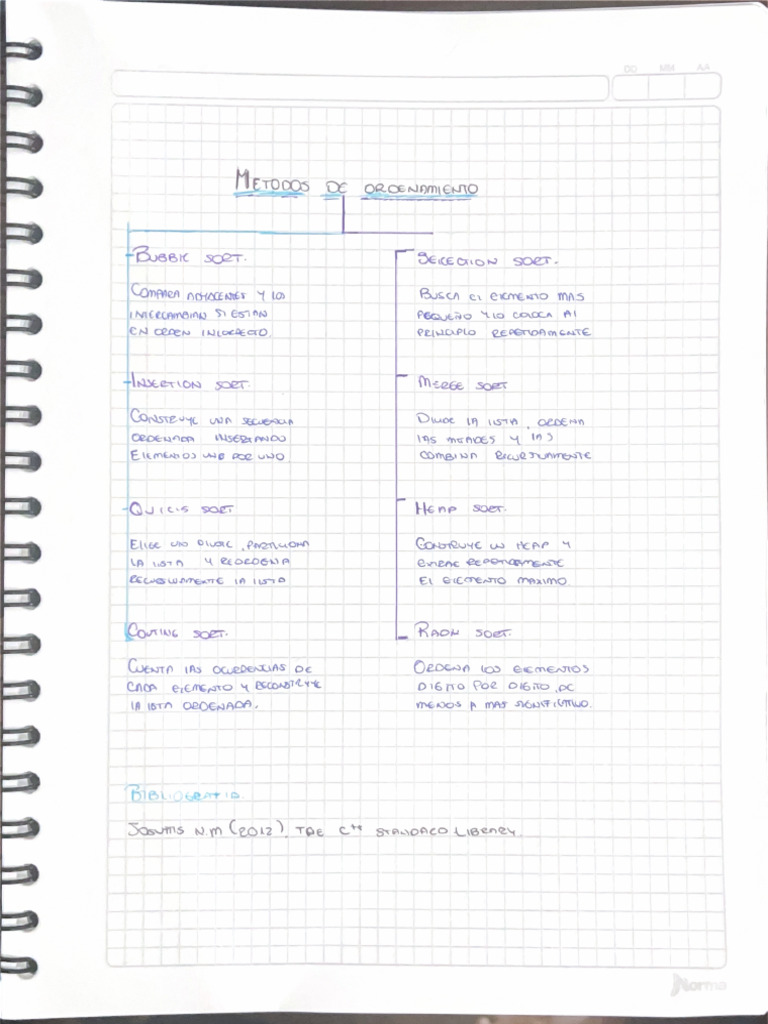 DD MM AA
METODOS DE ORDENAMIENTO
BUBBLE SORT.
COMPARA ADYACENTES Y LOS
INTERCAMBIAN SI ESTAN
EN ORDEN INCORRECTO.
INSERTION SORT.
CONSTRUYE UNA SECUENCIA
ORDENADA INSERTANDO
ELEMENTOS UNO POR UNO
QUICKS SORT
ELIGE UN PARTICIONA
LA LISTA Y REORDENA
RECURSIVAMENTE LA LISTA
COUTING SORT.
CUENTA LAS OCURRENCIAS DE
CADA ELEMENTO Y RECONSTRUYE
LA LISTA ORDENADA.
SELECCION SORT.
BUSCA EL ELEMENTO MAS
PEQUEÑO Y LO COLOCA AL
PRINCIPIO REPETIDAMENTE
MERGE SORT
DIVIDE LA LISTA, ORDENA
LAS MITADES Y LAS
COMBINA RECURSIVAMENTE
HEAP SORT.
CONSTRUYE UN HEAP Y
EXTRAE REPETIDAMENTE
EL ELEMENTO MAXIMO.
RADIX SORT.
ORDENA LOS ELEMENTOS
DIGITO POR DIGITO, DE
MENOS A MAS SIGNIFICATIVO.
BIBLIOGRAFIA.
N.M (2012). THE C++ STANDARD LIBRARY.
Norma